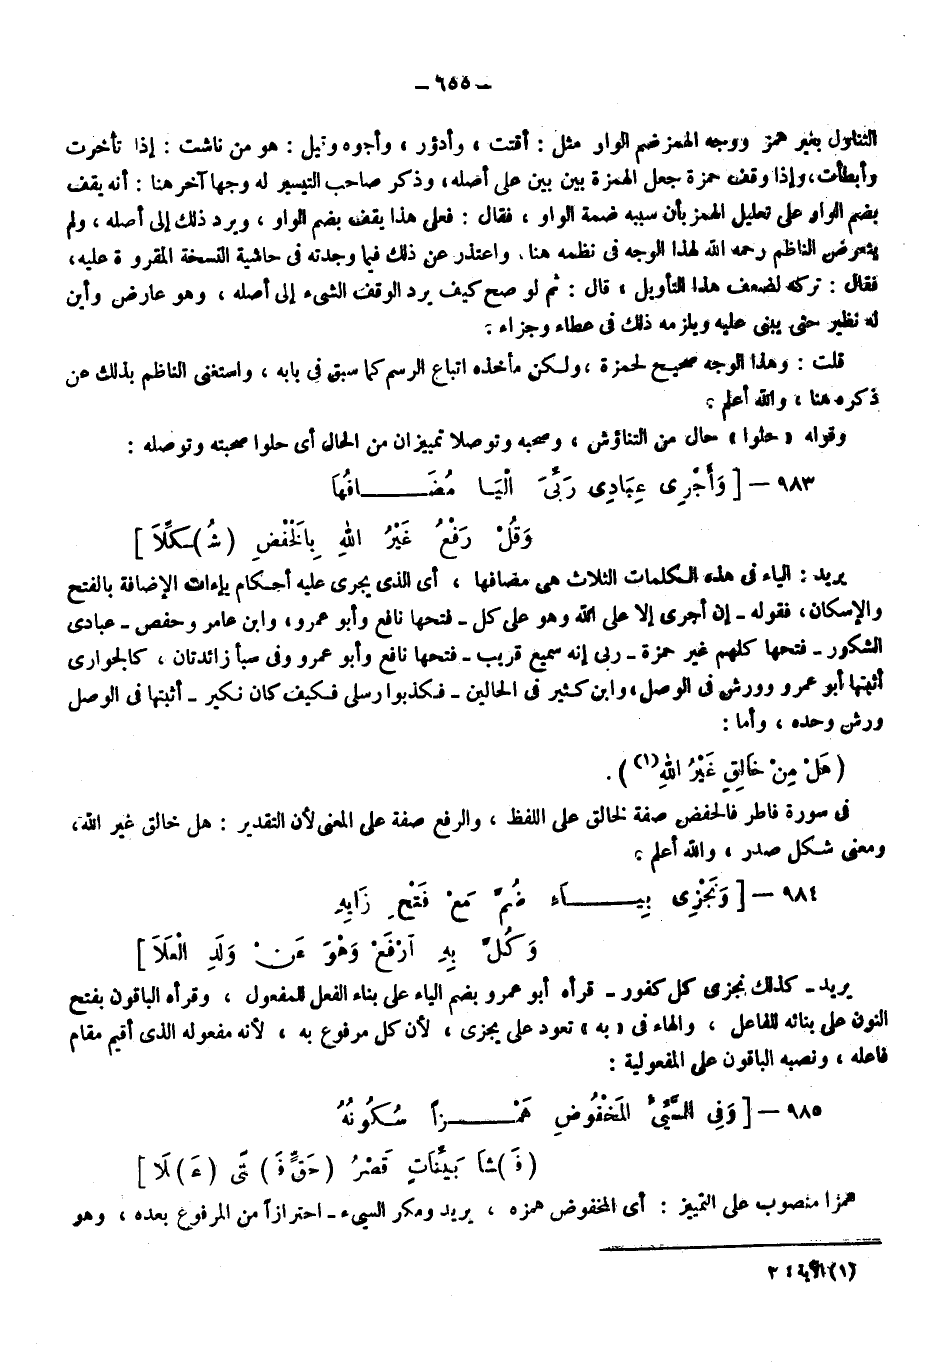 — ٦٥٥ —
التناول بغير همز ووجه الهمز ضم الواو مثل : أقتت ، وأدؤر ، وأجوه وقيل : هو من ناشت : إذا تأخرت
وأبطأت، وإذا وقف حمزة جعل الهمزة بين بين على أصله، وذكر صاحب التيسير له وجها آخر هنا : أنه يقف
بضم الواو على تعليل الهمز بأن سببه ضمة الواو ، فقال : فعلى هذا يقف بضم الواو ، ويرد ذلك إلى أصله ، ولم
يتعرض الناظم رحمه الله لهذا الوجه فى نظمه هنا. واعتذر عن ذلك فيما وجدته فى حاشية النسخة المقروءة عليه،
فقال : تركه لضعف هذا التأويل ، قال : ثم لو صح كيف يرد الوقف الشىء إلى أصله ، وهو عارض وأين
له نظير حتى يبنى عليه ويلزمه ذلك فى عطاء وجزاء .
قلت : وهذا الوجه صحيح لحمزة ،ولكن مأخذه اتباع الرسم كما سبق فى بابه ، واستغنى الناظم بذلك عن
ذكره هنا ، والله أعلم .
وقوله «حلوا» حال من التناؤش ، وصحبه وتوصلا تمييزان من الحال أى حلوا صحبته وتوصله :
٩٨٣ — [ وَأَجْرِى عِبَادِى رَبِّىَ الْيَـا مُضَـــافُهَا
وَقُلْ رَفْعُ غَيْرُ اللهِ بِالْخَفْضِ (شُ)ـكِّلَا ]
يريد : الياء فى هذه الكلمات الثلاث هى مضافها ، أى الذى يجرى عليه أحكام ياءات الإضافة بالفتح
والإسكان، فقوله ـ إن أجرى إلا على الله وهو على كل ـ فتحها نافع وأبو عمرو، وابن عامر وحفص ـ عبادى
الشكور ـ فتحها كلهم غير حمزة ـ ربى إنه سميع قريب ـ فتحها نافع وأبو عمرو وفى سبأ زائدتان ، كالجوارى
أثبتها أبو عمرو وورش فى الوصل، وابن كثير فى الحالين ـ فكذبوا رسلى فكيف كان نكير ـ أثبتها فى الوصل
ورش وحده ، وأما :
(هَلْ مِنْ خَالِقٍ غَيْرُ اللهِ(١)).
فى سورة فاطر فالخفض صفة لخالق على اللفظ ، والرفع صفة على المعنى لأن التقدير : هل خالق غير الله،
ومعنى شكل صدر ، والله أعلم .
٩٨٤ — [ وَنَجْزِى بِيَــــاءٍ ضُمَّ مَعْ فَتْحِ زَايِهِ
وَكُلَّ بِهِ ارْفَعْ وَهْوَ عَنْ وَلَدِ الْعَلَا ]
يريد ـ كذلك نجزى كل كفور ـ قرأه أبو عمرو بضم الياء على بناء الفعل للمفعول ، وقرأه الباقون بفتح
النون على بنائه للفاعل ، والهاء فى «به» تعود على يجزى ، لأن كل مرفوع به ، لأنه مفعوله الذى أقيم مقام
فاعله ، ونصبه الباقون على المفعولية :
٩٨٥ — [ وَفِى السَّيِّىءِ المَخْفُوضِ هَمْـــزاً سُكُونُهُ
(فَ)شَا بَيِّنَاتٍ قَصْرُ (حَقٍّ فَ)تًى (عَ)لَا ]
همزا منصوب على التمييز : أى المخفوض همزه ، يريد ومكر السيىء ـ احترازاً من المرفوع بعده ، وهو
(١) الآية ٤ ٢